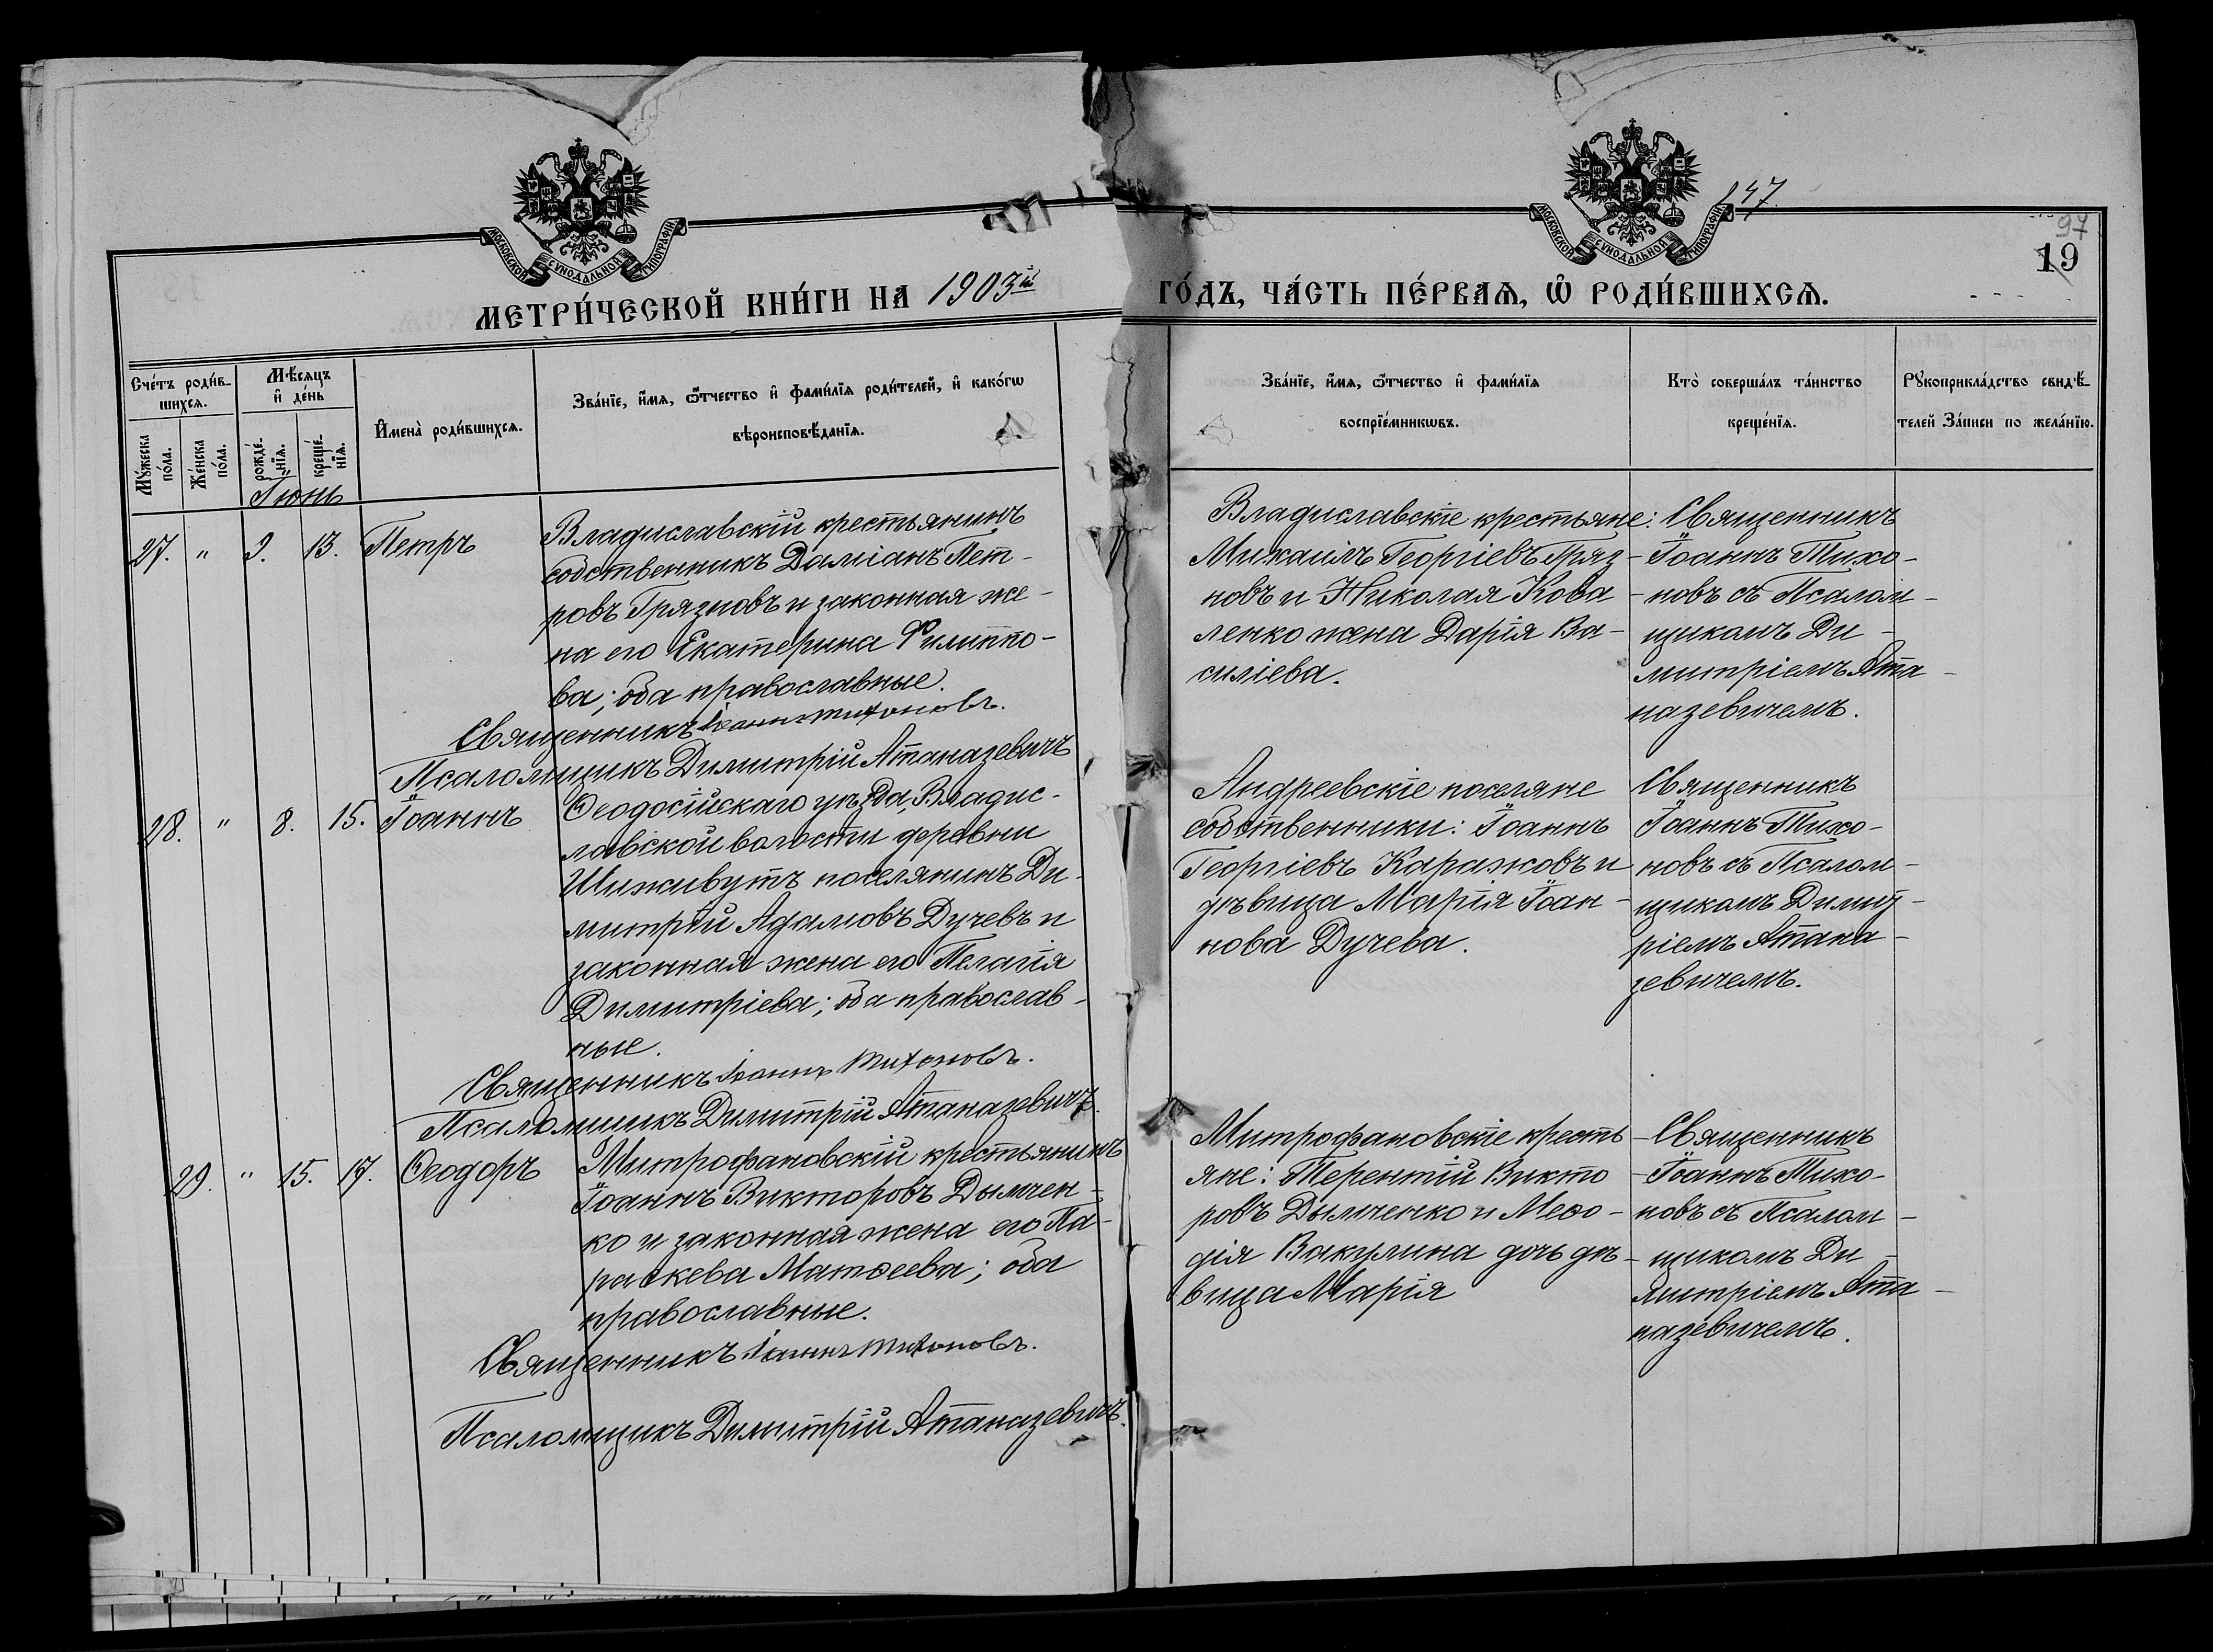 147.
97
19
МОСКОВСКОЙ СѴНОДАЛЬНОЙ ТИПОГРАФІИ
МОСКОВСКОЙ СѴНОДАЛЬНОЙ ТИПОГРАФІИ
МЕТРИ́ЧЕСКОЙ КНИ́ГИ НА 1903й ГО́ДЪ, ЧА́СТЬ ПЕ́РВАѦ, Ѡ҆ РОДИ́ВШИХСѦ.
Сче́тъ роди́в-
шихсѧ.
Мꙋ́жеска
по́ла.
Же́нска
по́ла.
Мѣ́сяцъ
и҆ де́нь
рожде́-
нїѧ.
креще́-
нїѧ.
И҆мена̀ роди́вшихсѧ.
Зва́нїе, и҆́мѧ, ѻ҆́тчество и҆ фами́лїѧ роди́телей, и҆ како́гѡ
вѣроисповѣ́данїѧ.
Зва́нїе, и҆́мѧ, ѻ҆́тчество и҆ фами́лїѧ
воспрїе́мникѡвъ.
Кто̀ соверша́лъ та́инство
креще́нїѧ.
Рꙋкоприкла́дство свидѣ́-
телей За́писи по жела́нїю.
Іюнь
27. " 9. 13. Петръ
Владиславскій крестьянинъ
собственникъ Даміанъ Пет-
ровъ Грязновъ и законная же-
на его Екатерина Филиппо-
ва; оба православные.
Священникъ Іоаннъ Тихоновъ.
Псаломщикъ Димитрій Атаназевичъ
Владиславскіе крестьяне:
Михаилъ Георгіевъ Гряз-
новъ и Николая Кова-
ленко жена Дарія Ва-
силіева.
Священникъ
Іоаннъ Тихо-
новъ съ Псалом-
щикомъ Ди-
митріемъ Ата-
назевичемъ.
28. " 8. 15. Іоаннъ
Ѳеодосійскаго уѣзда, Владис-
лавской волости деревни
Шиживутъ поселянинъ Ди-
митрій Адамовъ Дучевъ и
законная жена его Пелагія
Димитріева; оба православ-
ные.
Священникъ Іоаннъ Тихоновъ.
Псаломщикъ Димитрій Атаназевичъ.
Андреевскіе поселяне
собственники: Іоаннъ
Георгіевъ Каражовъ и
дѣвица Марія Іоан-
нова Дучева.
Священникъ
Іоаннъ Тихо-
новъ съ Псалом-
щикомъ Димит-
ріемъ Атана-
зевичемъ.
29. " 15. 17. Ѳеодоръ
Митрофановскій крестьянинъ
Іоаннъ Викторовъ Дымчен-
ко и законная жена его Па-
раскева Матѳеева; оба
православные.
Священникъ Іоаннъ Тихоновъ.
Псаломщикъ Димитрій Атаназевичъ.
Митрофановскіе кресть-
яне: Терентій Викто-
ровъ Дымченко и Меѳо-
дія Вакулина дочь дѣ-
вица Марія
Священникъ
Іоаннъ Тихо-
новъ съ Псалом-
щикомъ Ди-
митріемъ Ата-
назевичемъ.